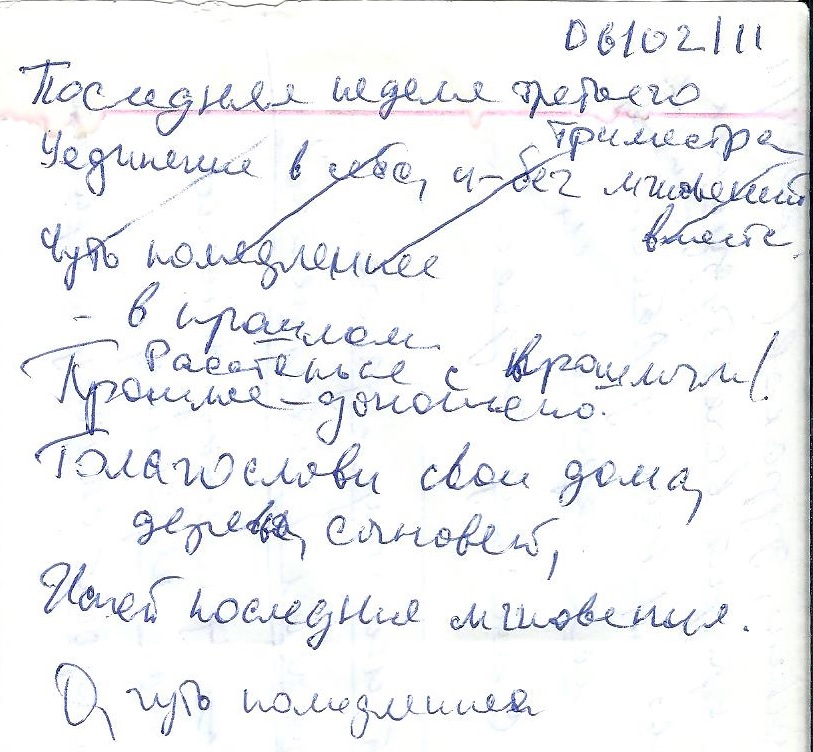 06/02/11
Последняя неделя третьего
триместра
Уединение в себе, и без мгновений
вместе.
Чуть помедленнее
- в прошлом.
Расстанься с прошлым!
Прошлое - доношено.
Благослови свои дома,
дерева, сыновей,
Испей последние мгновения.
О, чуть помедленнее